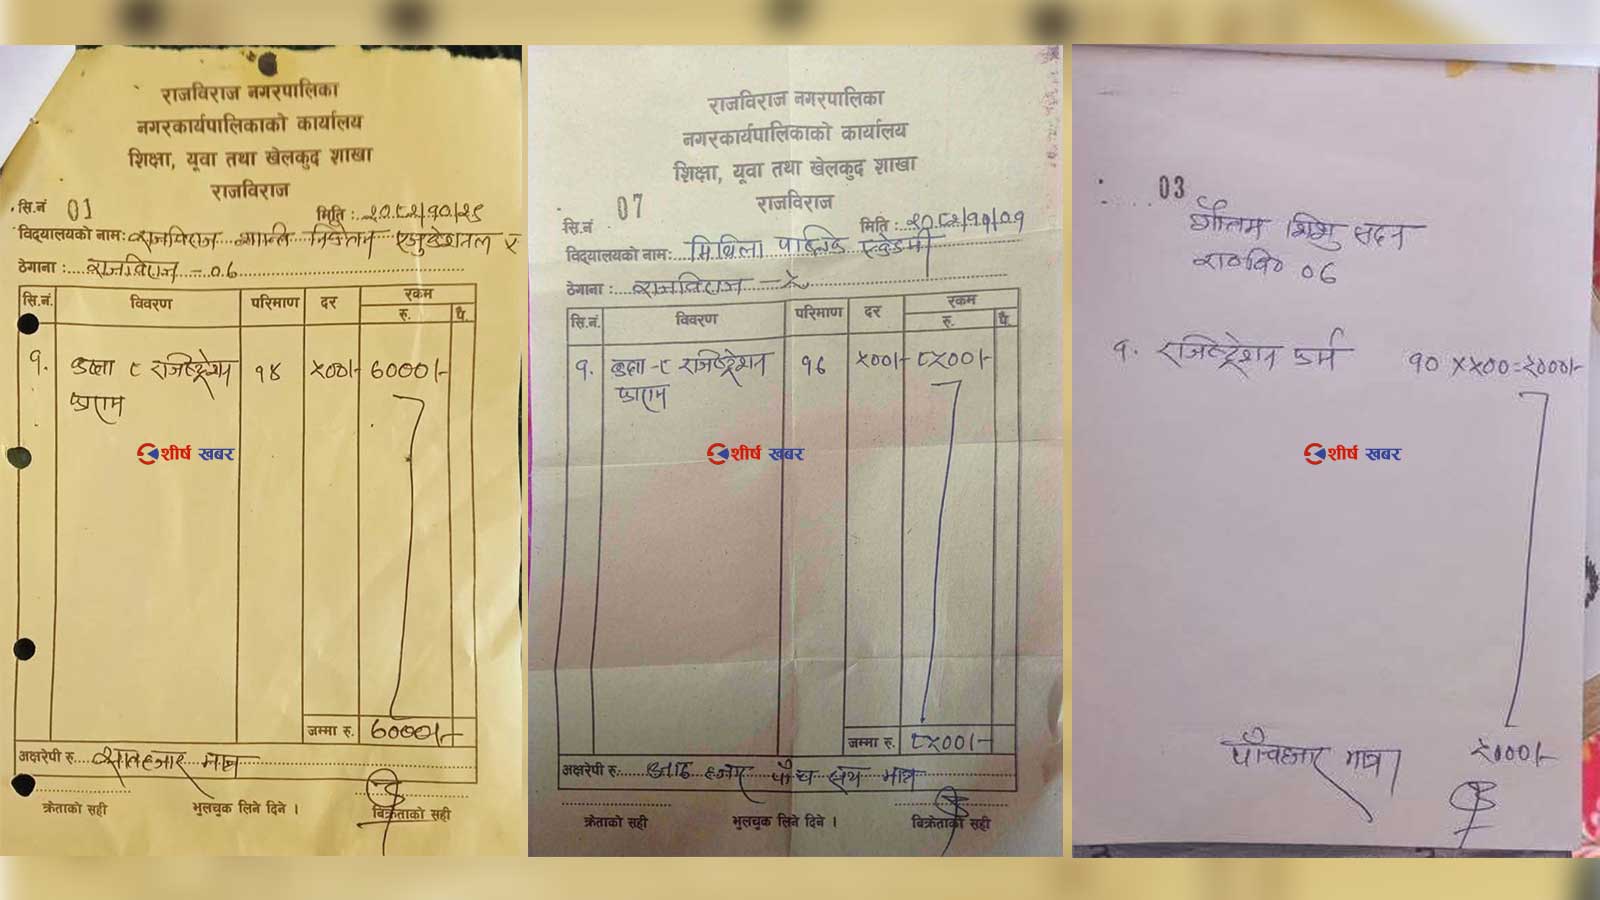 राजविराज नगरपालिका
नगरकार्यपालिकाको कार्यालय
शिक्षा, यूवा तथा खेलकुद शाखा
राजविराज
सि.नं 01
मिति : २०८२/१०/२८
विद्यालयको नाम: राजविराज शान्ति निकेतन एजुकेशनल ए
ठेगाना : राजविराज - ०६
सि.नं. विवरण परिमाण दर रकम
रु. पै.
१. कक्षा ८ रजिष्ट्रेशन १४ ५००।- ७०००।-
फाराम
शीर्ष खबर
जम्मा रु. ७०००।-
अक्षरेपी रु. सात हजार मात्र
क्रेताको सही भुलचुक लिने दिने । विक्रेताको सही
राजविराज नगरपालिका
नगरकार्यपालिकाको कार्यालय
शिक्षा, यूवा तथा खेलकुद शाखा
राजविराज
सि.नं 07
मिति : २०८२/११/०१
विद्यालयको नाम: मिथिला एकेडेमी
ठेगाना : राजविराज - ५
सि.नं. विवरण परिमाण दर रकम
रु. पै.
१. कक्षा - ८ रजिष्ट्रेशन १७ ५००।- ८५००।-
फाराम
शीर्ष खबर
जम्मा रु. ८५००।-
अक्षरेपी रु. आठ हजार पाँच सय मात्र
क्रेताको सही भुलचुक लिने दिने । विक्रेताको सही
03
गौतम शिशु सदन
रा०वि० ०६
१. रजिष्ट्रेशन फर्म १० x ५०० = ५०००।-
शीर्ष खबर
पाँच हजार मात्र ५०००।-